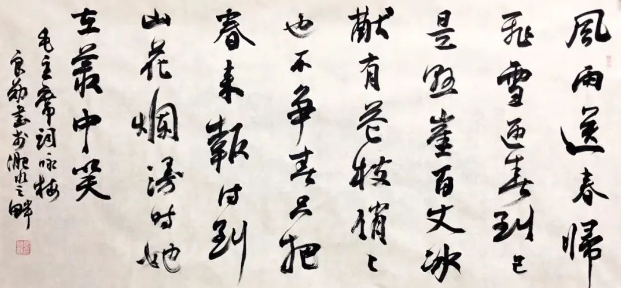 風雨送春歸
飛雪迎春到已
是懸崖百丈冰
猷有花枝俏〻
也不爭春只把
春來報待到
山花爛漫時她
在叢中笑
毛主席詞咏梅
良勀書於淝水之畔